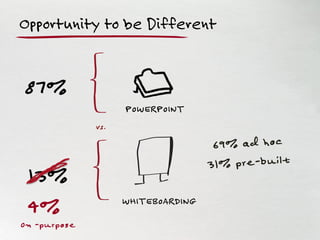 Opportunity to be Different
87%
POWERPOINT
vs.
69% ad hoc
31% pre-built
13%
WHITEBOARDING
4%
on-purpose